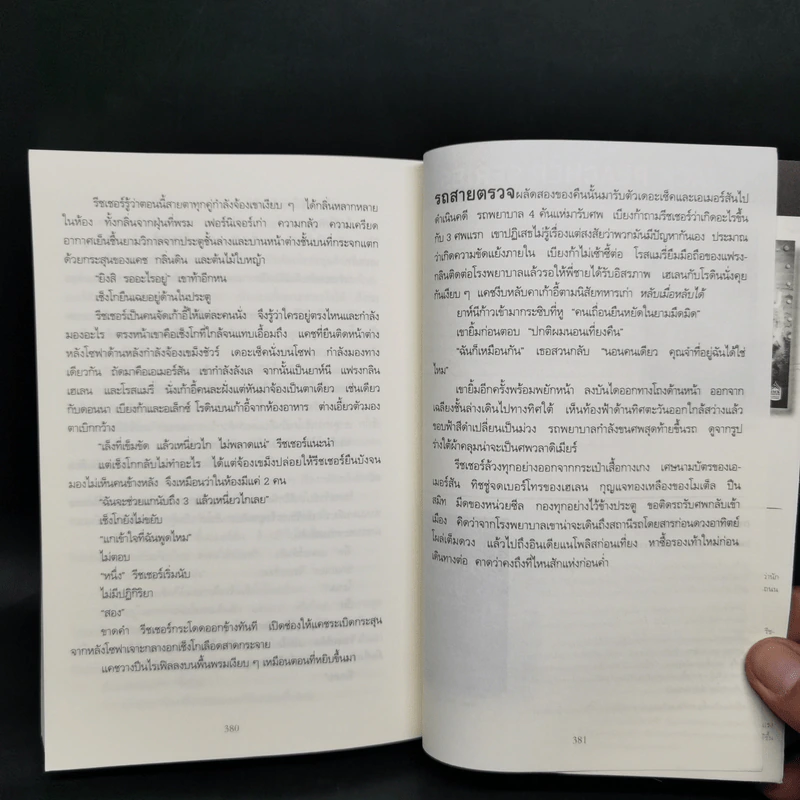 รีชเชอร์รู้ว่าตอนนี้สายตาทุกคู่กำลังจ้องเขาเงียบ ๆ ได้กลิ่นหลากหลาย
ในห้อง ทั้งกลิ่นจากฝุ่นที่พรม เฟอร์นิเจอร์เก่า ความกลัว ความเครียด
อากาศเย็นชื้นยามวิกาลจากประตูชั้นล่างและบานหน้าต่างชั้นบนที่กระจกแตก
ด้วยกระสุนของแคช กลิ่นดิน และต้นไม้ใบหญ้า
“ยิงสิ รออะไรอยู่” เขาท้าอีกหน
เช็งโกยืนเฉยอยู่ด้านในประตู
รีชเชอร์เป็นคนจัดเก้าอี้ให้แต่ละคนนั่ง จึงรู้ว่าใครอยู่ตรงไหนและกำลัง
มองอะไร ตรงหน้าเขาคือเช็งโกที่ใกล้จนแทบเอื้อมถึง แคชที่ยืนติดหน้าต่าง
หลังโซฟาด้านหลังกำลังจ้องเขม็งชัวร์ เดอะเซ็คนั่งบนโซฟา กำลังมองทาง
เดียวกัน ถัดมาคือเอเมอร์สัน เขากำลังลังเล จากนั้นเป็นยาห์นี แฟรงกลิน
เฮเลน และโรสแมรี่ นั่งเก้าอี้คนละฝั่งแต่หันมาจ้องเป็นตาเดียว เช่นเดียว
กับดอนนา เบียงก้าและอเล็กซ์ โรดินบนเก้าอี้จากห้องอาหาร ต่างเอี้ยวตัวมอง
ตาเบิกกว้าง
“เล็งที่เข็มขัด แล้วเหนี่ยวไก ไม่พลาดแน่” รีชเชอร์แนะนำ
แต่เช็งโกกลับไม่ทำอะไร ได้แต่จ้องเขม็งปล่อยให้รีชเชอร์ยืนบังจน
มองไม่เห็นคนข้างหลัง จึงเหมือนว่าในห้องมีแค่ 2 คน
“ฉันจะช่วยแกนับถึง 3 แล้วเหนี่ยวไกเลย”
เช็งโกยังไม่ขยับ
“แกเข้าใจที่ฉันพูดไหม”
ไม่ตอบ
“หนึ่ง” รีชเชอร์เริ่มนับ
ไม่มีปฏิกิริยา
“สอง”
ขาดคำ รีชเชอร์กระโดดออกข้างทันที เปิดช่องให้แคชระเบิดกระสุน
จากหลังโซฟาเจาะกลางอกเช็งโกเลือดสาดกระจาย
แคชวางปืนไรเฟิลลงบนพื้นพรมเงียบ ๆ เหมือนตอนที่หยิบขึ้นมา
380
รถสายตรวจผลัดสองของคืนนั้นมารับตัวเดอะเซ็คและเอเมอร์สันไป
ดำเนินคดี รถพยาบาล 4 คันแห่มารับศพ เบียงก้าถามรีชเชอร์ว่าเกิดอะไรขึ้น
กับ 3 ศพแรก เขาปฏิเสธไม่รู้เรื่องแต่สงสัยว่าพวกมันมีปัญหากันเอง ประมาณ
ว่าเกิดความขัดแย้งภายใน เบียงก้าไม่เซ้าซี้ต่อ โรสแมรี่ยืมมือถือของแฟรง-
กลินติดต่อโรงพยาบาลแล้วรอให้พี่ชายได้รับอิสรภาพ เฮเลนกับโรดินนั่งคุย
กันเงียบ ๆ แคชงีบหลับคาเก้าอี้ตามนิสัยทหารเก่า หลับเมื่อหลับได้
ยาห์นีก้าวเข้ามากระซิบที่หู “คนเถื่อนยืนหยัดในยามมืดมิด”
เขายิ้มก่อนตอบ “ปกติผมนอนเที่ยงคืน”
“ฉันก็เหมือนกัน” เธอสวนกลับ “นอนคนเดียว คุณจำที่อยู่ฉันได้ใช่
ไหม”
เขายิ้มอีกครั้งพร้อมพยักหน้า ลงบันไดออกทางโถงด้านหน้า ออกจาก
เฉลียงชั้นล่างเดินไปทางทิศใต้ เห็นท้องฟ้าด้านทิศตะวันออกใกล้สว่างแล้ว
ขอบฟ้าสีดำเปลี่ยนเป็นม่วง รถพยาบาลกำลังขนศพสุดท้ายขึ้นรถ ดูจากรูป
ร่างใต้ผ้าคลุมน่าจะเป็นศพวลาดิเมียร์
รีชเชอร์ล้วงทุกอย่างออกจากกระเป๋าเสื้อกางเกง เศษนามบัตรของเอ-
เมอร์สัน ทิชชู่จดเบอร์โทรของเฮเลน กุญแจทองเหลืองของโมเต็ล ปืน
สมิท มีดของหน่วยซีล กองทุกอย่างไว้ข้างประตู ขอติดรถรับศพกลับเข้า
เมือง คิดว่าจากโรงพยาบาลเขาน่าจะเดินถึงสถานีรถโดยสารก่อนดวงอาทิตย์
โผล่เต็มดวง แล้วไปถึงอินเดียแนโพลิสก่อนเที่ยง หาซื้อรองเท้าใหม่ก่อน
เดินทางต่อ คาดว่าคงถึงที่ไหนสักแห่งก่อนค่ำ
381